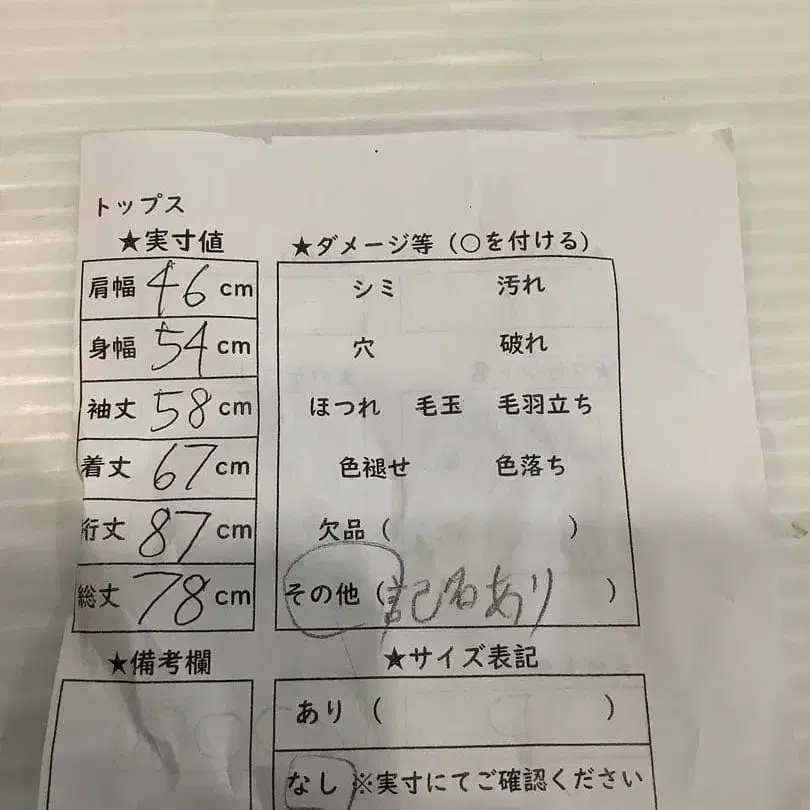 トップス
★実寸値
肩幅 46 cm
身幅 54 cm
袖丈 58 cm
着丈 67 cm
裄丈 87 cm
総丈 78 cm
★ダメージ等（○を付ける）
シミ 汚れ
穴 破れ
ほつれ 毛玉 毛羽立ち
色褪せ 色落ち
欠品（ ）
その他（記名あり）
★備考欄
★サイズ表記
あり（ ）
なし ※実寸にてご確認ください